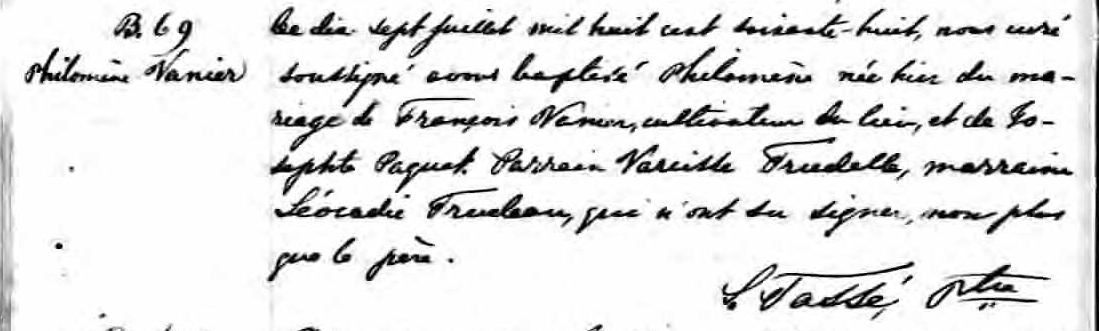 B. 69
Philomène Vanier
Le dix-sept juillet mil huit cent soixante-huit, nous curé
soussigné avons baptisé Philomène née hier du ma-
riage de François Vanier, cultivateur du lieu, et de Jo-
sephte Paquet. Parrain Narcisse Trudelle, marraine
Léocadie Trudeau, qui n'ont su signer, non plus
que le père.
L. Tassé, ptre